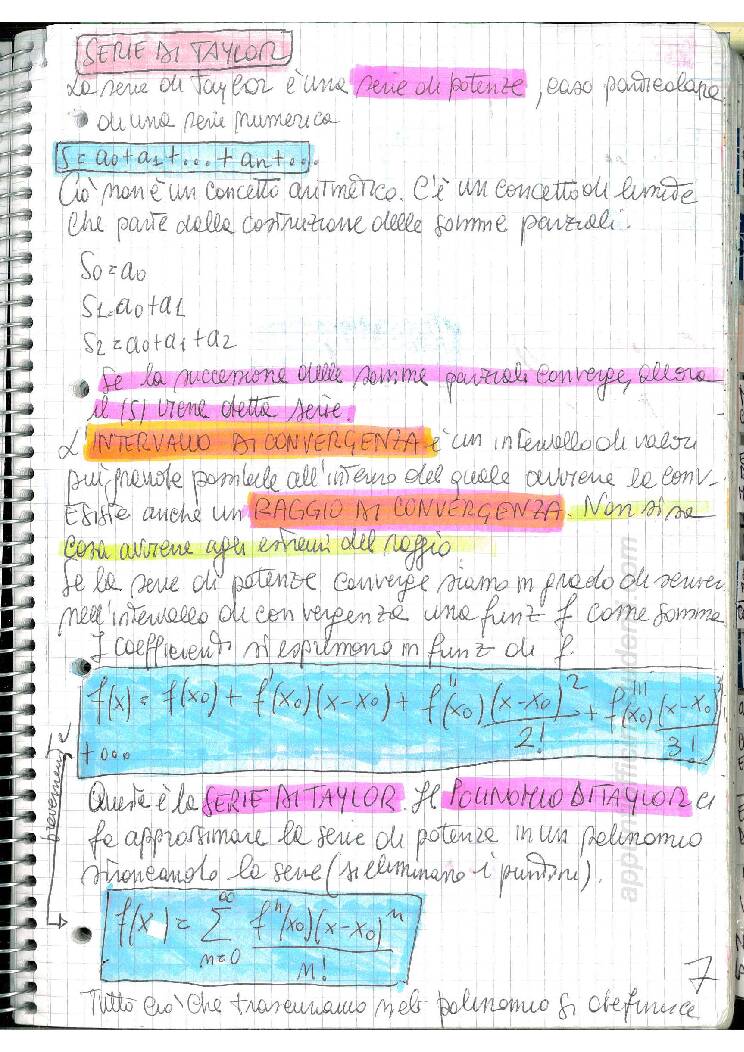 SERIE DI TAYLOR
La serie di Taylor è una serie di potenze, caso particolare
di una serie numerica
S = a0 + a1 + ... + an + ...
Ciò non è un concetto aritmetico. C'è un concetto di limite
che parte dalla costruzione delle somme parziali.
S0 = a0
S1 = a0 + a1
S2 = a0 + a1 + a2
Se la successione delle somme parziali converge, allora
il (S) viene detta serie.
L'INTERVALLO DI CONVERGENZA è un intervallo di valori
più grande possibile all'interno del quale avviene la conv.
Esiste anche un RAGGIO DI CONVERGENZA. Non si sa
cosa avviene agli estremi del raggio
Se la serie di potenze converge siamo in grado di scriver
nell'intervallo di convergenza una funz f come somma
I coefficienti si esprimono in funz di f.
f(x) = f(x0) + f'(x0)(x-x0) + f''(x0) (x-x0)²/2! + f'''(x0) (x-x0)³/3!
+ ...
Questa è la SERIE DI TAYLOR. Il POLINOMIO DI TAYLOR ci
fa approssimare la serie di potenze in un polinomio
troncando la serie (si eliminano i puntini).
brevemente
f(x) = ∞ Σ n=0 fⁿ(x0)(x-x0)ⁿ/n!
7
Tutto ciò che trascuriamo nel polinomio si definisce